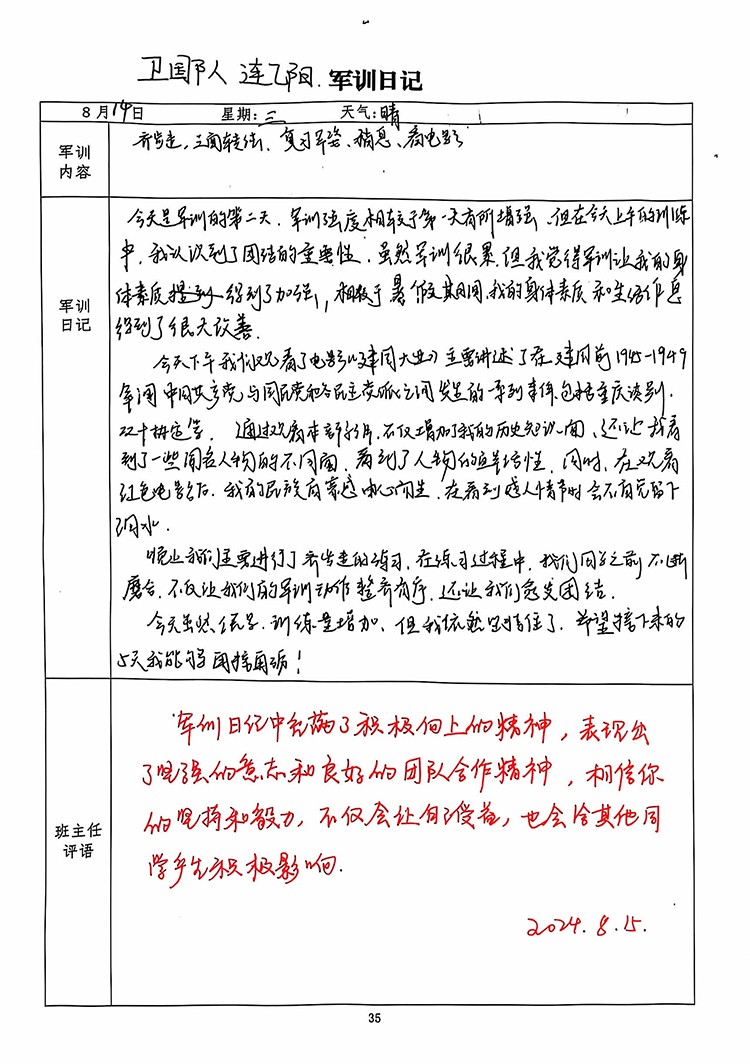 军训日记
8月14日 星期:三 天气:晴
军训
内容
齐步走、三面转法、复习军姿、稍息、看电影
军训
日记
今天是军训的第二天,军训强度相较于第一天有所增强,但在今天上午的训练
中,我认识到了团结的重要性,虽然军训很累,但我觉得军训让我的身
体素质得到了加强,相较于暑假期间,我的身体素质和生活作息
得到了很大改善.
今天下午我们观看了电影《建国大业》主要讲述了在建国前1945-1949
年间中国共产党与国民党和各民主党派之间发生的一系列事件包括重庆谈判,
双十协定等. 通过观看本部影片,不仅增加了我的历史知识面,还让我看
到了一些著名人物的不同面,看到了人物的性,同时,在观看
红色电影后,我的民族自豪感由心而生,在看到感人情节时会不自觉留下
泪水.
晚上我们主要进行了齐步走的练习,在练习过程中,我们同学之前不断
磨合,不仅让我们的军训动作整齐有序,还让我们愈发团结.
今天虽然很累,训练量增加,但我依然坚持住了,希望接下来的
5天我能够再接再砺!
班主任
评语
军训日记中充满了积极向上的精神,表现出
了坚强的意志和良好的团队合作精神,相信你
的坚持和毅力,不仅会让自己受益,也会给其他同
学产生积极影响.
2024.8.15.
35